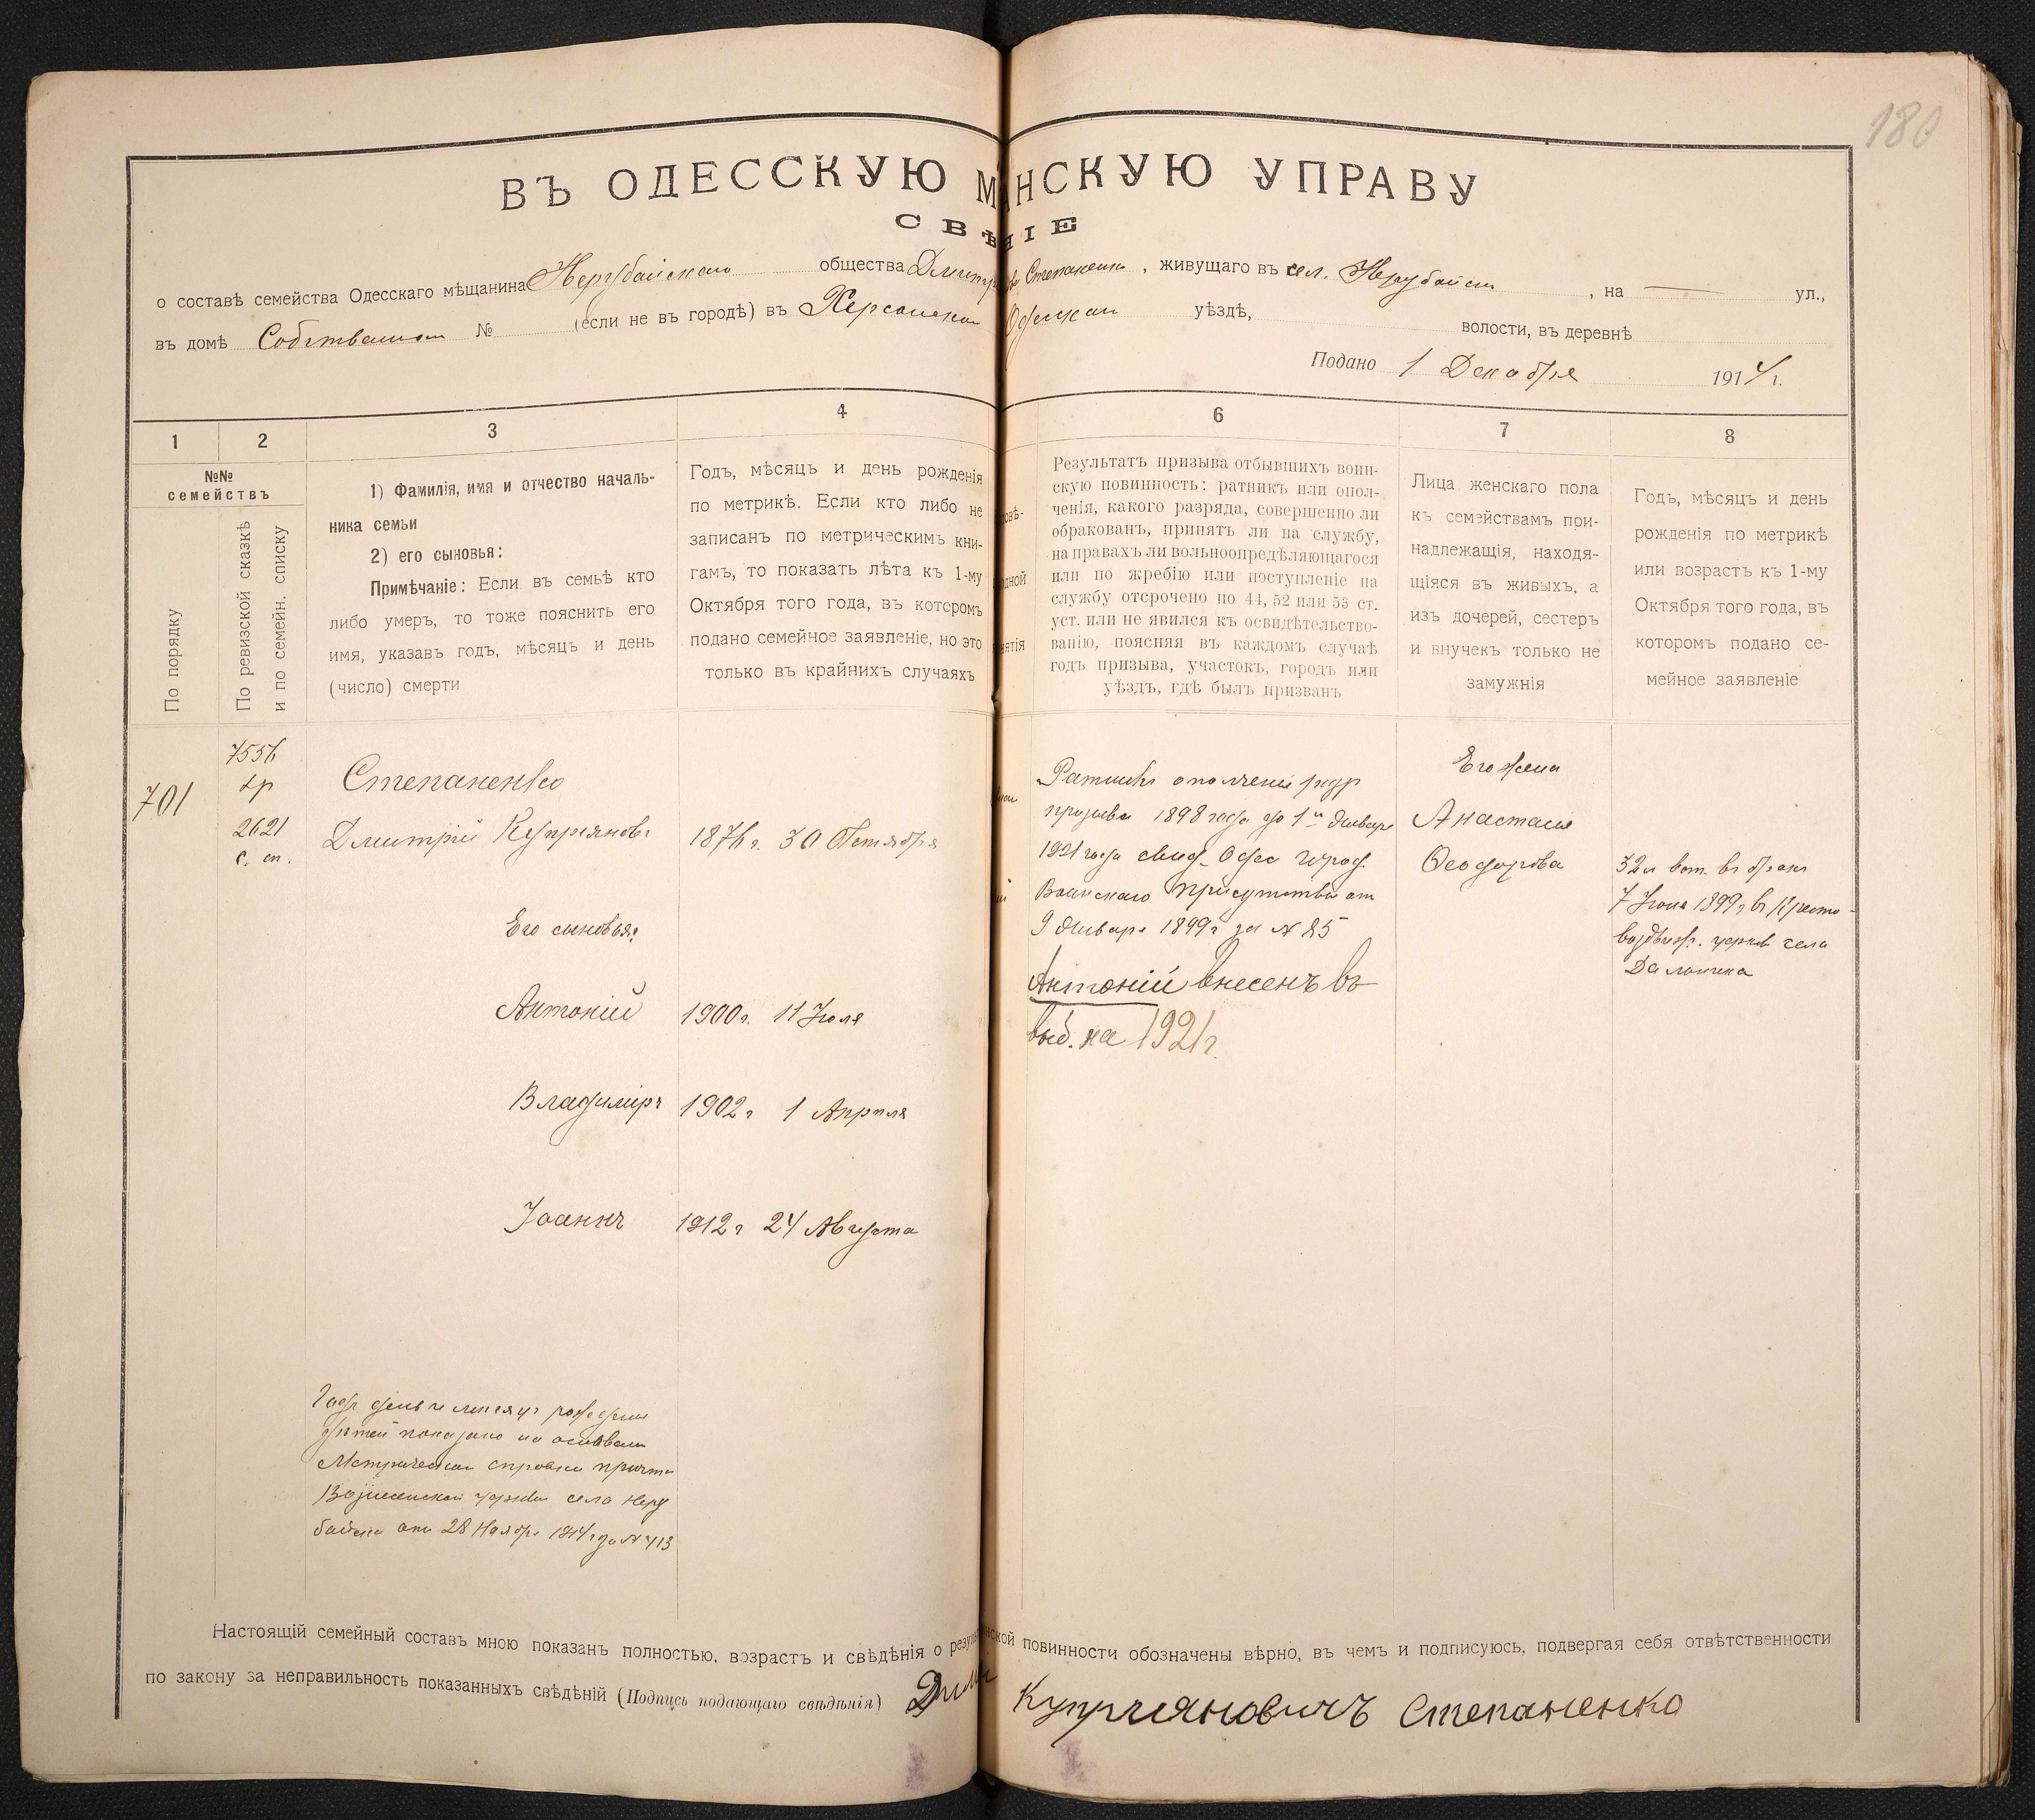 180
ВЪ ОДЕССКУЮ М НСКУЮ УПРАВУ
СВѢ НІЕ
о составѣ семейства Одесскаго мѣщанина Нерубайскаго общества Дмитр Степаненко, живущаго въ сел. Нерубайск, на — ул.,
въ домѣ Собственном № (если не въ городѣ) въ Херсонском Одесском уѣздѣ, волости, въ деревнѣ
Подано 1 Декабря 1914 г.
1 2 3 4 6 7 8
№№ семействъ
По порядку
По ревизской сказкѣ
и по семейн. списку
1) Фамилія, имя и отчество началь-
ника семьи
2) его сыновья:
Примѣчаніе: Если въ семьѣ кто
либо умеръ, то тоже пояснить его
имя, указавъ годъ, мѣсяцъ и день
(число) смерти
Годъ, мѣсяцъ и день рожденія
по метрикѣ. Если кто либо не
записанъ по метрическимъ кни-
гамъ, то показать лѣта къ 1-му
Октября того года, въ которомъ
подано семейное заявленіе, но это
только въ крайнихъ случаяхъ
Результатъ призыва отбывшихъ воин-
скую повинность: ратникъ или опол-
ченія, какого разряда, совершенно ли
обракованъ, принятъ ли на службу,
на правахъ ли вольноопредѣляющагося
или по жребію или поступленіе на
службу отсрочено по 44, 52 или 53 ст.
уст. или не явился къ освидѣтельство-
ванію, поясняя въ каждомъ случаѣ
годъ призыва, участокъ, городъ или
уѣздъ, гдѣ былъ призванъ
Лица женскаго пола
къ семействамъ при-
надлежащія, находя-
щіяся въ живыхъ, а
изъ дочерей, сестеръ
и внучекъ только не
замужнія
Годъ, мѣсяцъ и день
рожденія по метрикѣ
или возрастъ къ 1-му
Октября того года, въ
которомъ подано се-
мейное заявленіе
701
2621
с. сп.
Степаненко
Дмитрій Купріяновъ 1876 г. 30 Октября
Его сыновья:
Антоній 1900 г. 11 Іюля
Владиміръ 1902 г 1 Апреля
Іоаннъ 1912 г 24 Августа
Годъ день и месяцъ рождения
детей показано на основании
Метрической справки причта
Вознесенской церкви села Неру
байска от 28 Ноября 1914 г за № 413
Ратникъ ополчения
призыва 1898 года до 1го Января
1921 года свид. Одес город.
Воинскаго присутствия от
9 Января 1899 г за № 85
Антоній внесенъ въ
выб. на 1921 г.
Его жена
Анастасия
Феодорова
32 л вст. въ бракъ
7 Іюня 1899 г в Кресто-
воздвиж. церкв села
Дальника
Настоящій семейный составъ мною показанъ полностью, возрастъ и свѣдѣнія о резул нской повинности обозначены вѣрно, въ чемъ и подписуюсь, подвергая себя отвѣтственности
по закону за неправильность показанныхъ свѣдѣній (Подпись подающаго свѣдѣнія) Дми Куприяновичъ Степаненко